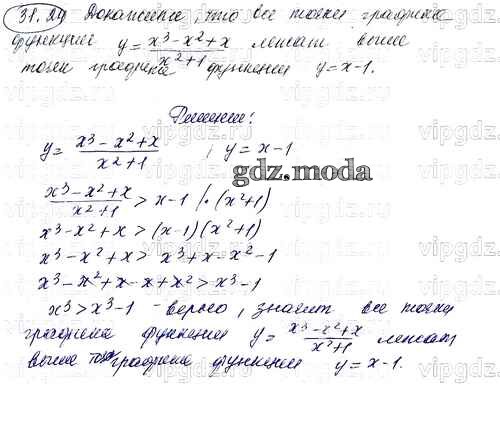 31.29 Докажите, что все точки графика
функции y = x³ - x² + x / x² + 1 лежат выше
точек графика функции y = x - 1.
Решение:
y = x³ - x² + x / x² + 1 , y = x - 1
gdz.moda
x³ - x² + x / x² + 1 > x - 1 | · (x² + 1)
x³ - x² + x > (x - 1)(x² + 1)
x³ - x² + x > x³ + x - x² - 1
x³ - x² + x - x + x² > x³ - 1
x³ > x³ - 1 - верно, значит все точки
графика функции y = x³ - x² + x / x² + 1 лежат
выше графика функции y = x - 1.